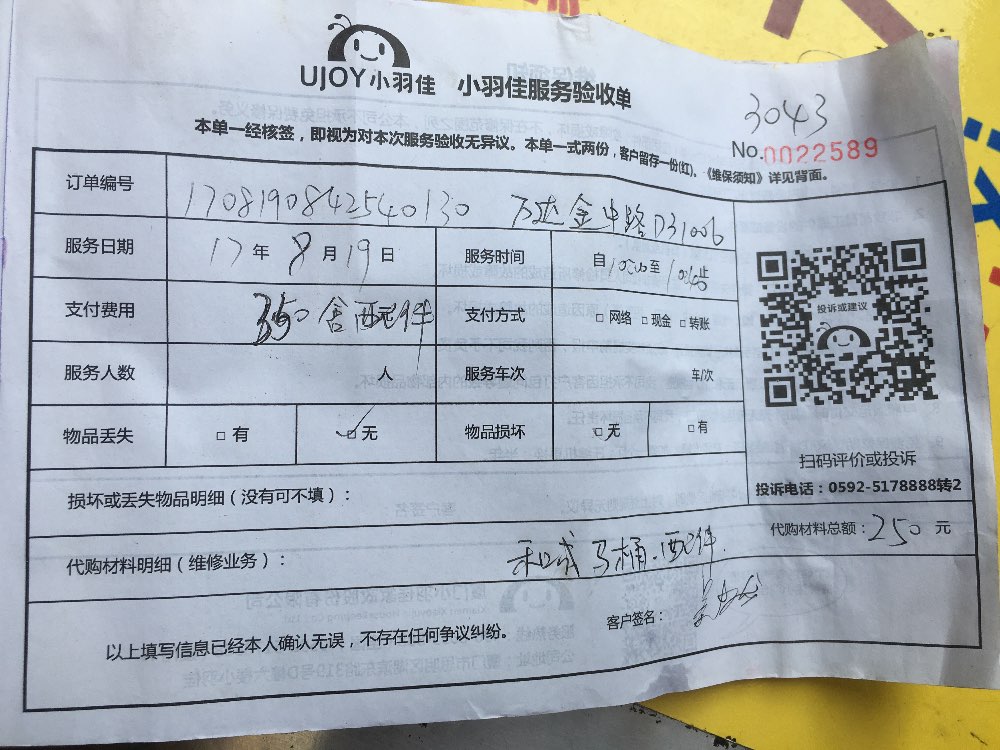 UJOY小羽佳 小羽佳服务验收单
3043
本单一经核签，即视为对本次服务验收无异议。本单一式两份，客户留存一份(红)。《维保须知》详见背面。
No.0022589
订单编号 170819084254040130 万达金中路D31006
服务日期 17年8月19日 服务时间 自10:00至10:40止
支付费用 350含配件 元 支付方式 □网络 □现金 □转账
服务人数 人 服务车次 车/次
物品丢失 □有 □无 物品损坏 □无 □有
投诉或建议
扫码评价或投诉
投诉电话：0592-5178888转2
损坏或丢失物品明细（没有可不填）：
代购材料总额：250元
代购材料明细（维修业务）： 和成马桶.配件
以上填写信息已经本人确认无误，不存在任何争议纠纷。
客户签名：